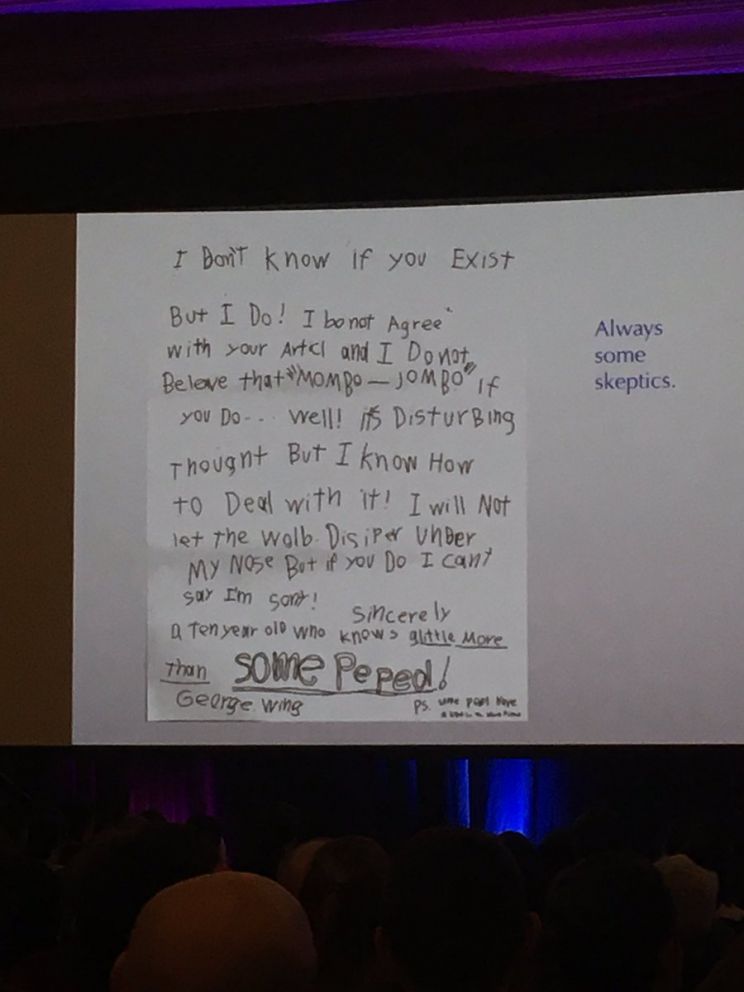 I Don't know if you Exist
But I Do! I bo not Agree
with your Artcl and I Do not
Beleave that "MOMBO — JOMBO" If
you Do... well! it's DisturBing
Thought But I know How
to Deal with it! I will Not
let the wolb Disiper UNBer
My Nose But if you Do I can't
say I'm sorry!
Sincerely
a Ten year old who knows alittle More
Than some Peped!
George Wing
Ps.
Always
some
skeptics.